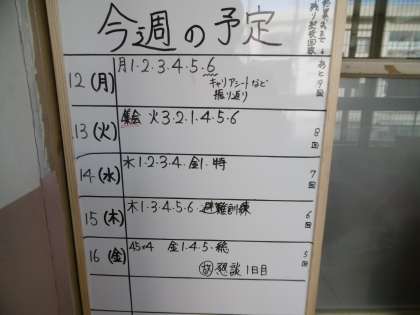 今週の予定
あと9回
12(月) 月1・2・3・4・5・6
キャリアシートなど
振り返り
13(火) 集会 火3・2・1・4・5・6
8回
14(水) 木1・2・3・4 金1・特
7回
15(木) 木1・3・4・5・6 避難訓練
6回
16(金) 45×4 金1・4・5・総
5回
懇談1日目